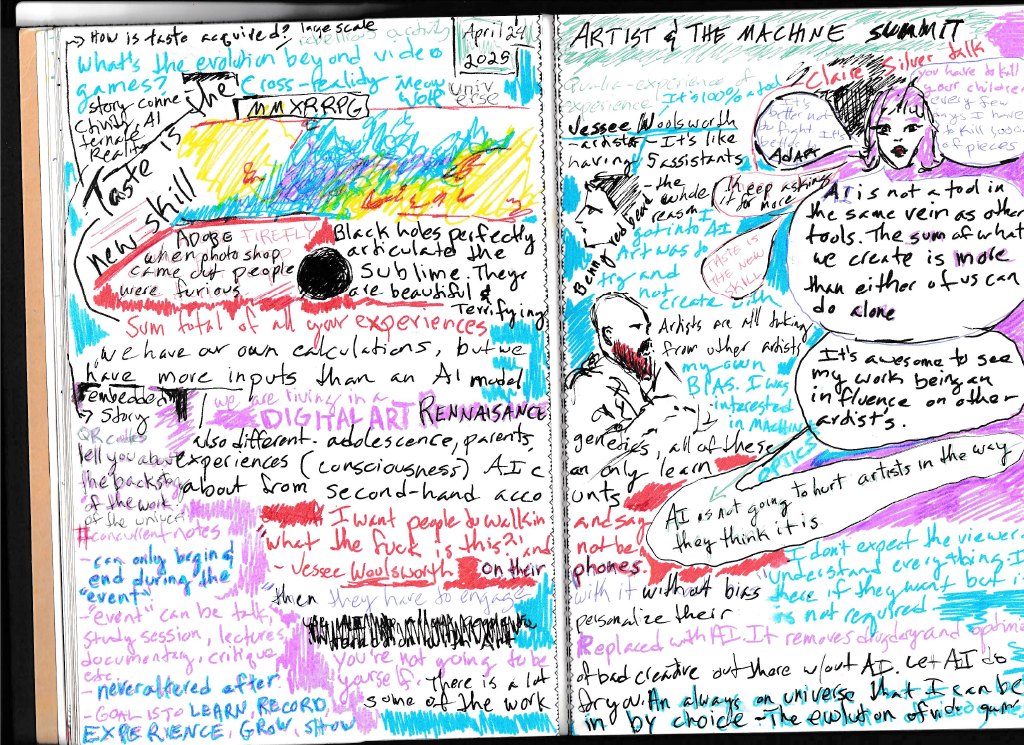 → How is taste acquired? large scale
April 24
2025
what's the evolution beyond video
games? Cross-reality Meow
Wolf universe
MMXRRPG
story conne
ctivity, AI
ternate
Reality
Taste is the
new skill
ADOBE FIREFLY
when photoshop
came out people
were furious
Black holes perfectly
articulate the
sublime. They
are beautiful &
Terrifying
Sum total of all your experiences
we have our own calculations, but we
have more inputs than an AI model
embedded
→ Story
we are living in a
DIGITAL ART RENNAISANCE
QR codes
tell you about
the backstory
of the work.
of the univer
also different - adolescence, parents,
experiences (consciousness) AI c
about from second-hand acco
#concurrentnotes
- can only begin &
end during the
"event"
- "event" can be talk,
study session, lectures,
documentary, critique
etc.
- never altered after
- GOAL IS TO LEARN, RECORD,
EXPERIENCE, GROW, SHOW
"I want people to walk in
"what the fuck is this?!" and
- Jessee Woolsworth on their
then they have to engage
you're not going to be
yourself. There is a lot
some of the work
ARTIST & THE MACHINE SUMMIT
Claire Silver talk
Qualia - experience of
experience. It's 100% a tool
Jessee Woolsworth
- artist - It's like
having 5 assistants
It's
better not
to fight it
ADAPT
you have to kill
your children
every few
I have
to kill
of pieces
Benny Redbeard
- the
whole
reason I
got into AI
Art was to
try and
not
create with
my own
BIAS. I was
interested
in MACHINE
OPTICS
Keep asking
it for more
TASTE IS
THE NEW
SKILL
AI is not a tool in
the same vein as other
tools. The sum of what
we create is more
than either of us can
do alone
Artists are all taking
from other artists
It's awesome to see
my work being an
influence on other
artist's.
genetics, all of these
an only learn
unts
AI is not going to hurt artists in the way
they think it is
and say
not be
phones.
with it without bias
personalize their
I don't expect the viewer
understand everything. I
there if they want but i
is not required
Replaced with AI. It removes drudgery and optimi
of bad creative out there w/out AI. Let AI do
for you. An always on universe that I can be
in by choice - The evolution of video games